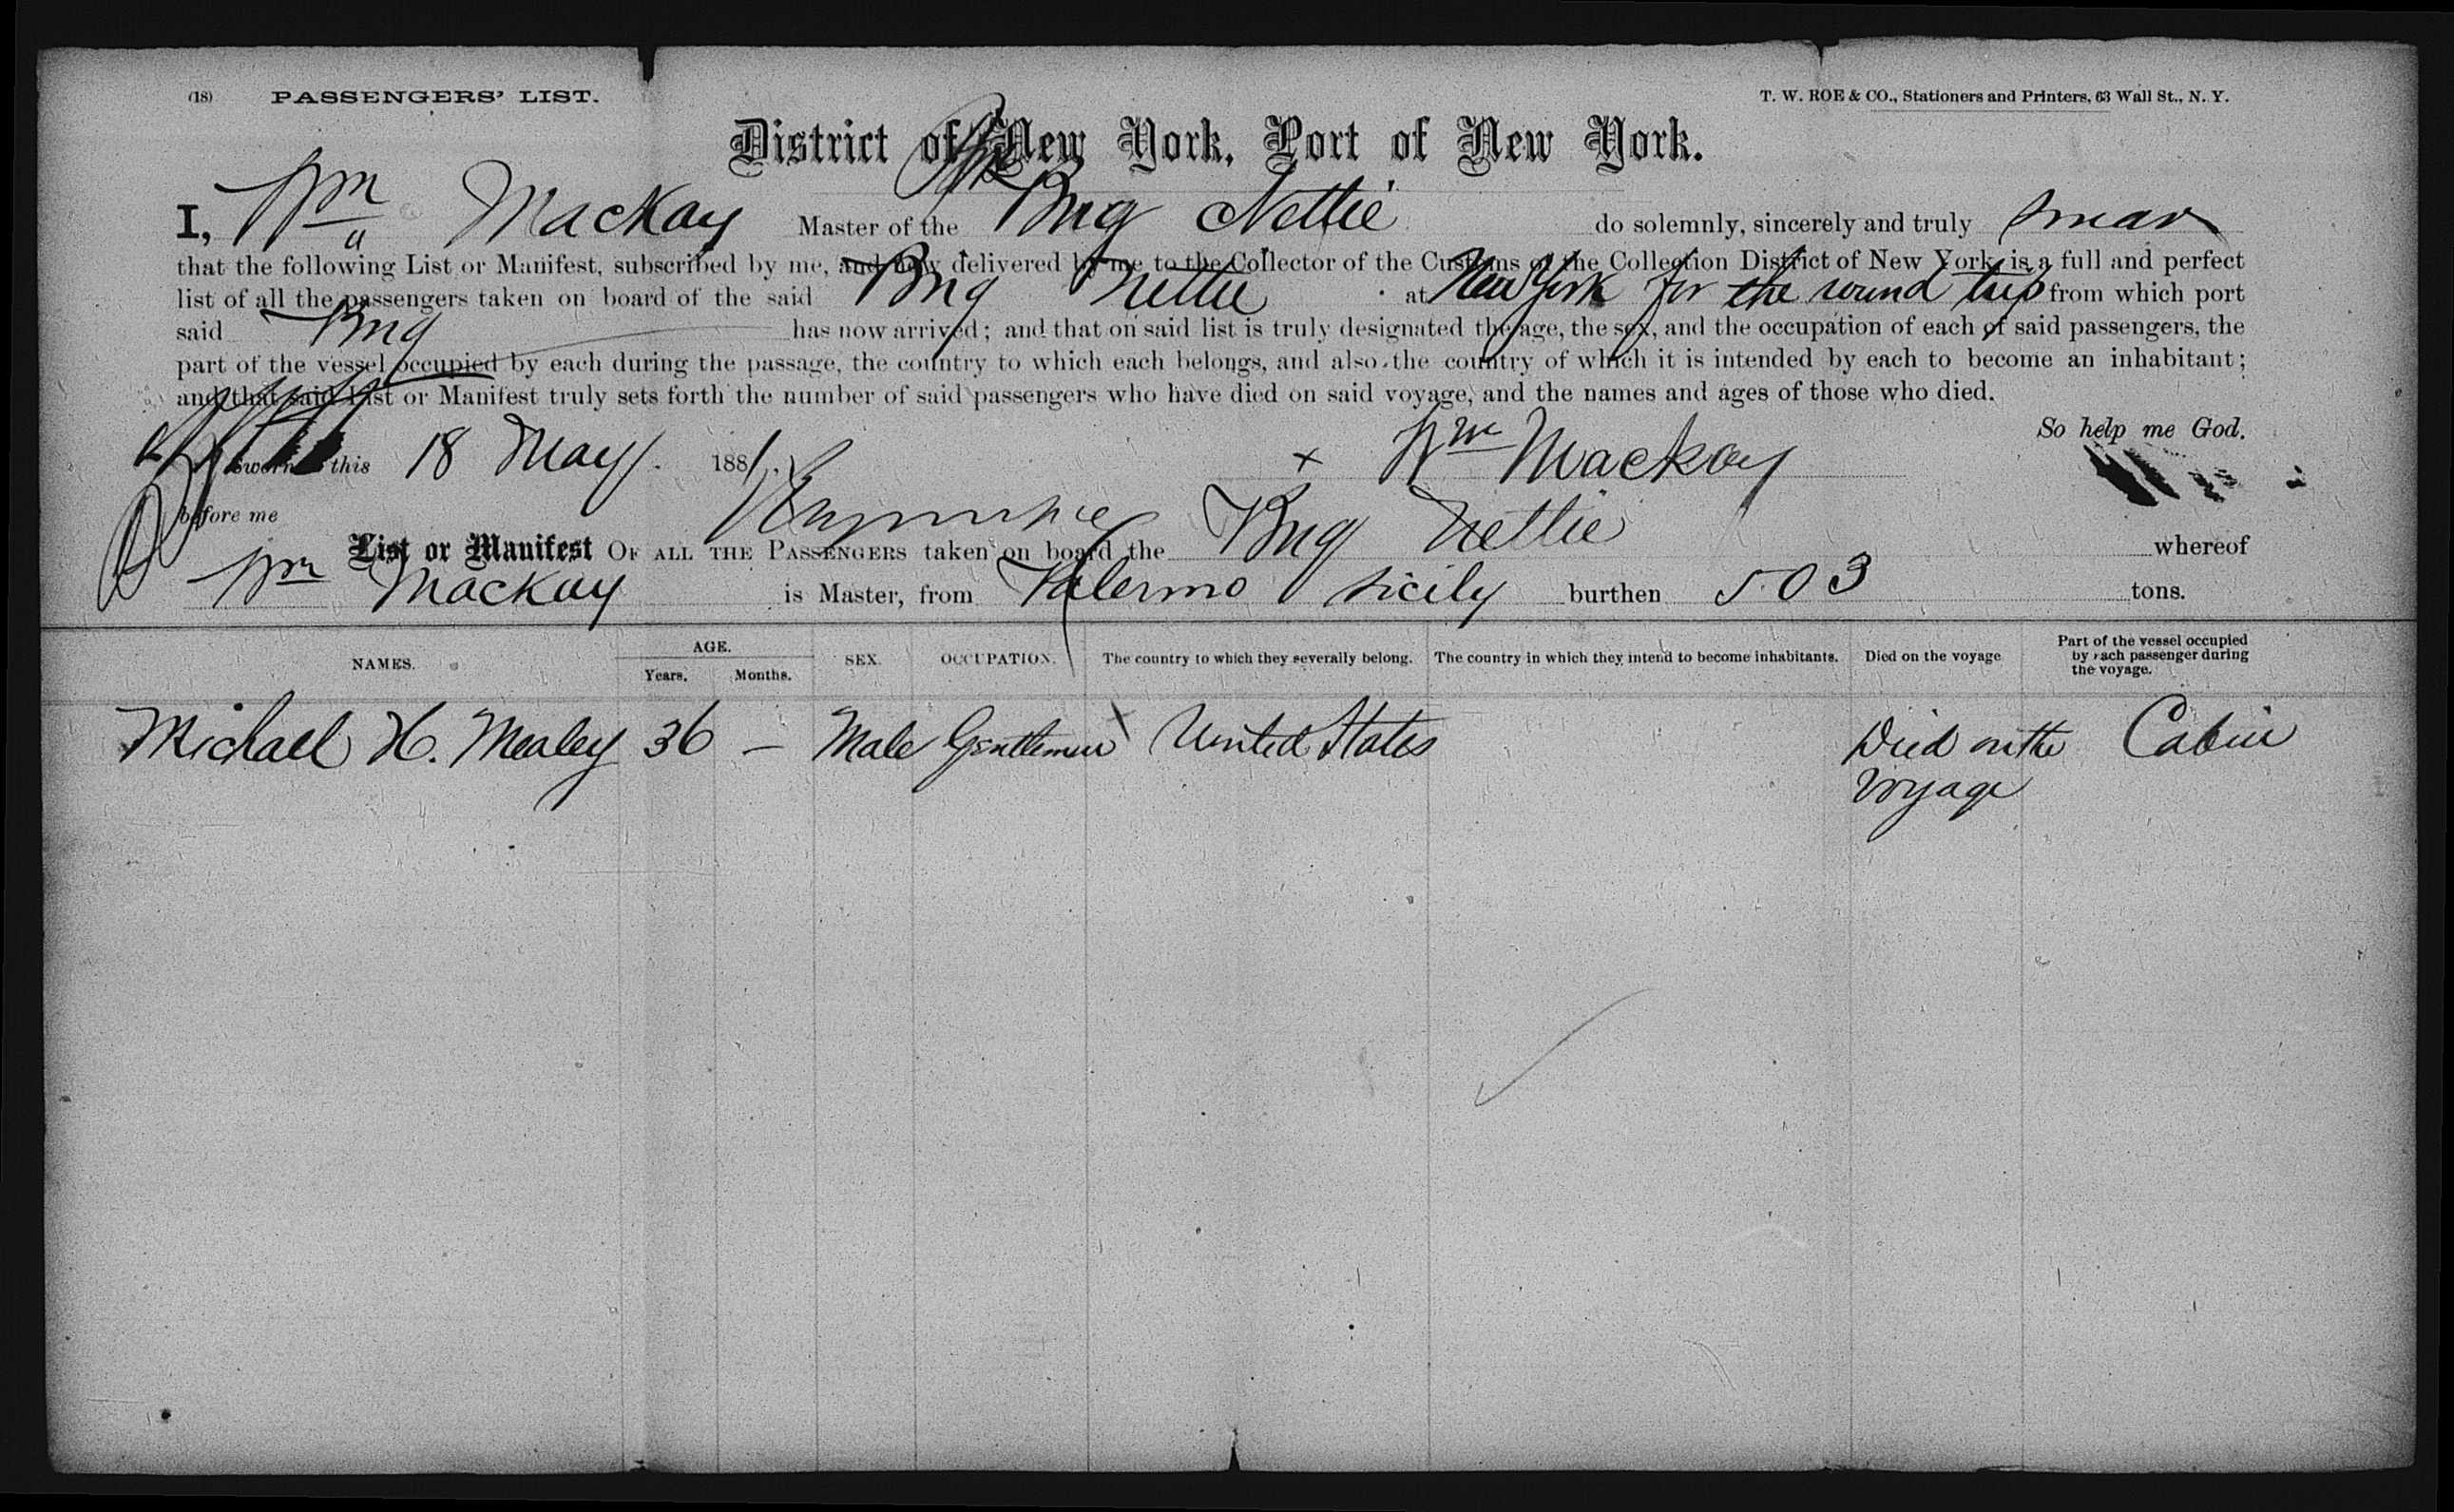 (18) PASSENGERS' LIST. T. W. ROE & CO., Stationers and Printers, 63 Wall St., N. Y.
District of New York, Port of New York.
I, Wm Mackay Master of the Brig Nettie do solemnly, sincerely and truly swear
that the following List or Manifest, subscribed by me, and now delivered by me to the Collector of the Customs of the Collection District of New York, is a full and perfect
list of all the passengers taken on board of the said Brig Nettie at New York for the round trip from which port
said Brig has now arrived; and that on said list is truly designated the age, the sex, and the occupation of each of said passengers, the
part of the vessel occupied by each during the passage, the country to which each belongs, and also the country of which it is intended by each to become an inhabitant;
and that said List or Manifest truly sets forth the number of said passengers who have died on said voyage, and the names and ages of those who died.
So help me God.
Sworn to this 18 May 1881. x Wm Mackay
before me
List or Manifest OF ALL THE PASSENGERS taken on board the Brig Nettie whereof
Wm Mackay is Master, from Palermo Sicily burthen 503 tons.
NAMES. AGE. Years. Months. SEX. OCCUPATION. The country to which they severally belong. The country in which they intend to become inhabitants. Died on the voyage Part of the vessel occupied by each passenger during the voyage.
Michael H. Mealey 36 — Male Gentleman United States Died on the Cabin
voyage